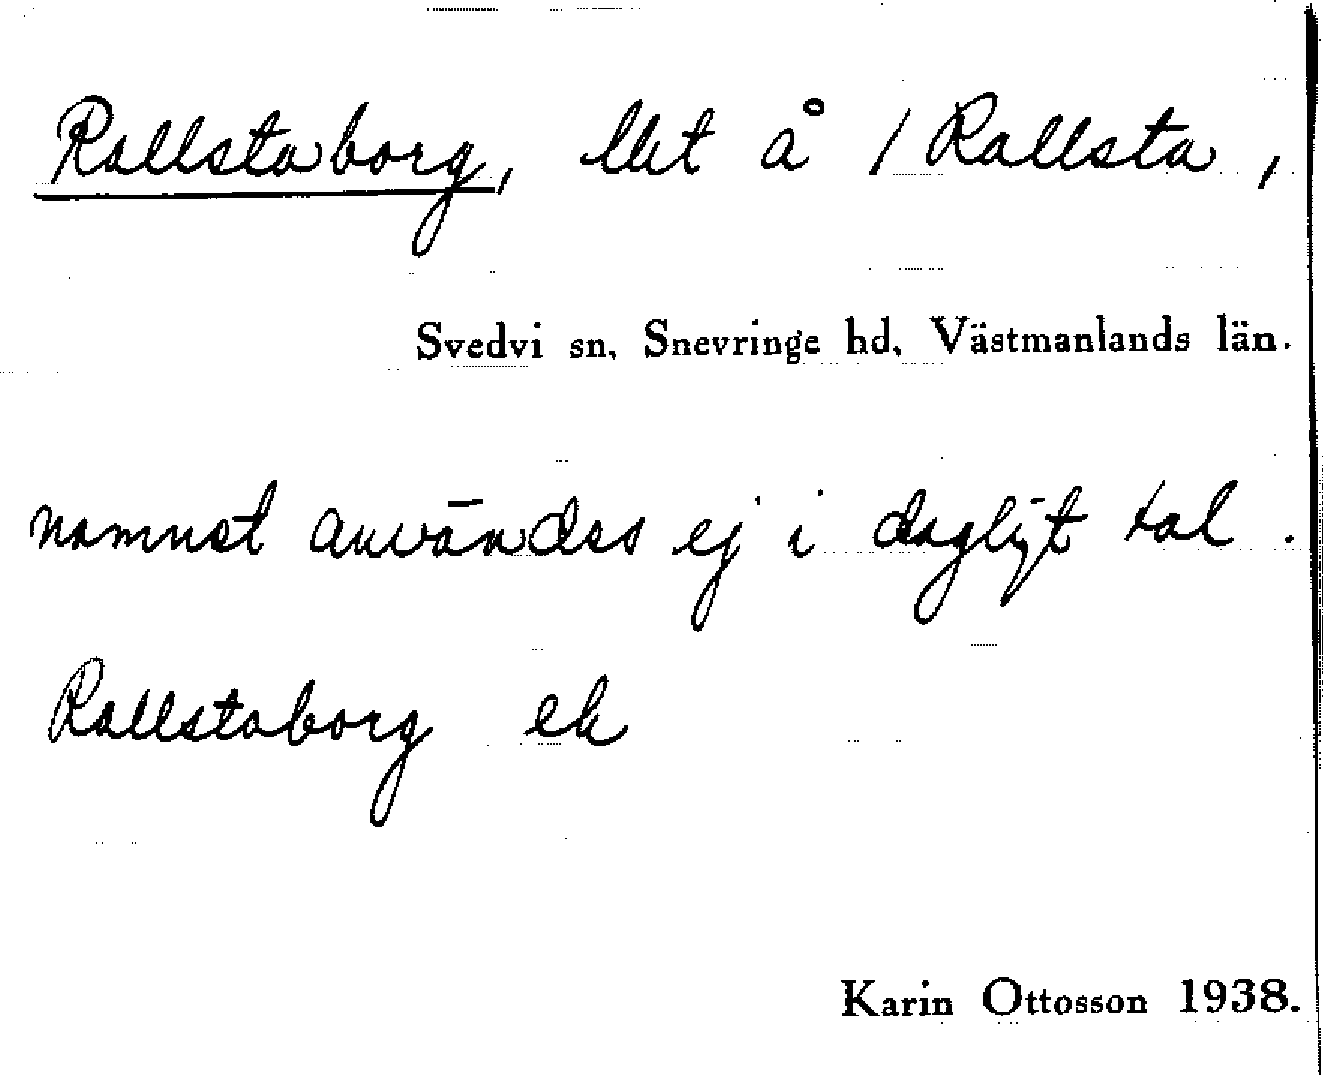 Rallstaborg, lht å 1 Rallsta,
Svedvi sn, Snevringe hd, Västmanlands län.
namnet användes ej i dagligt tal.
Rallstaborg ek
Karin Ottosson 1938.